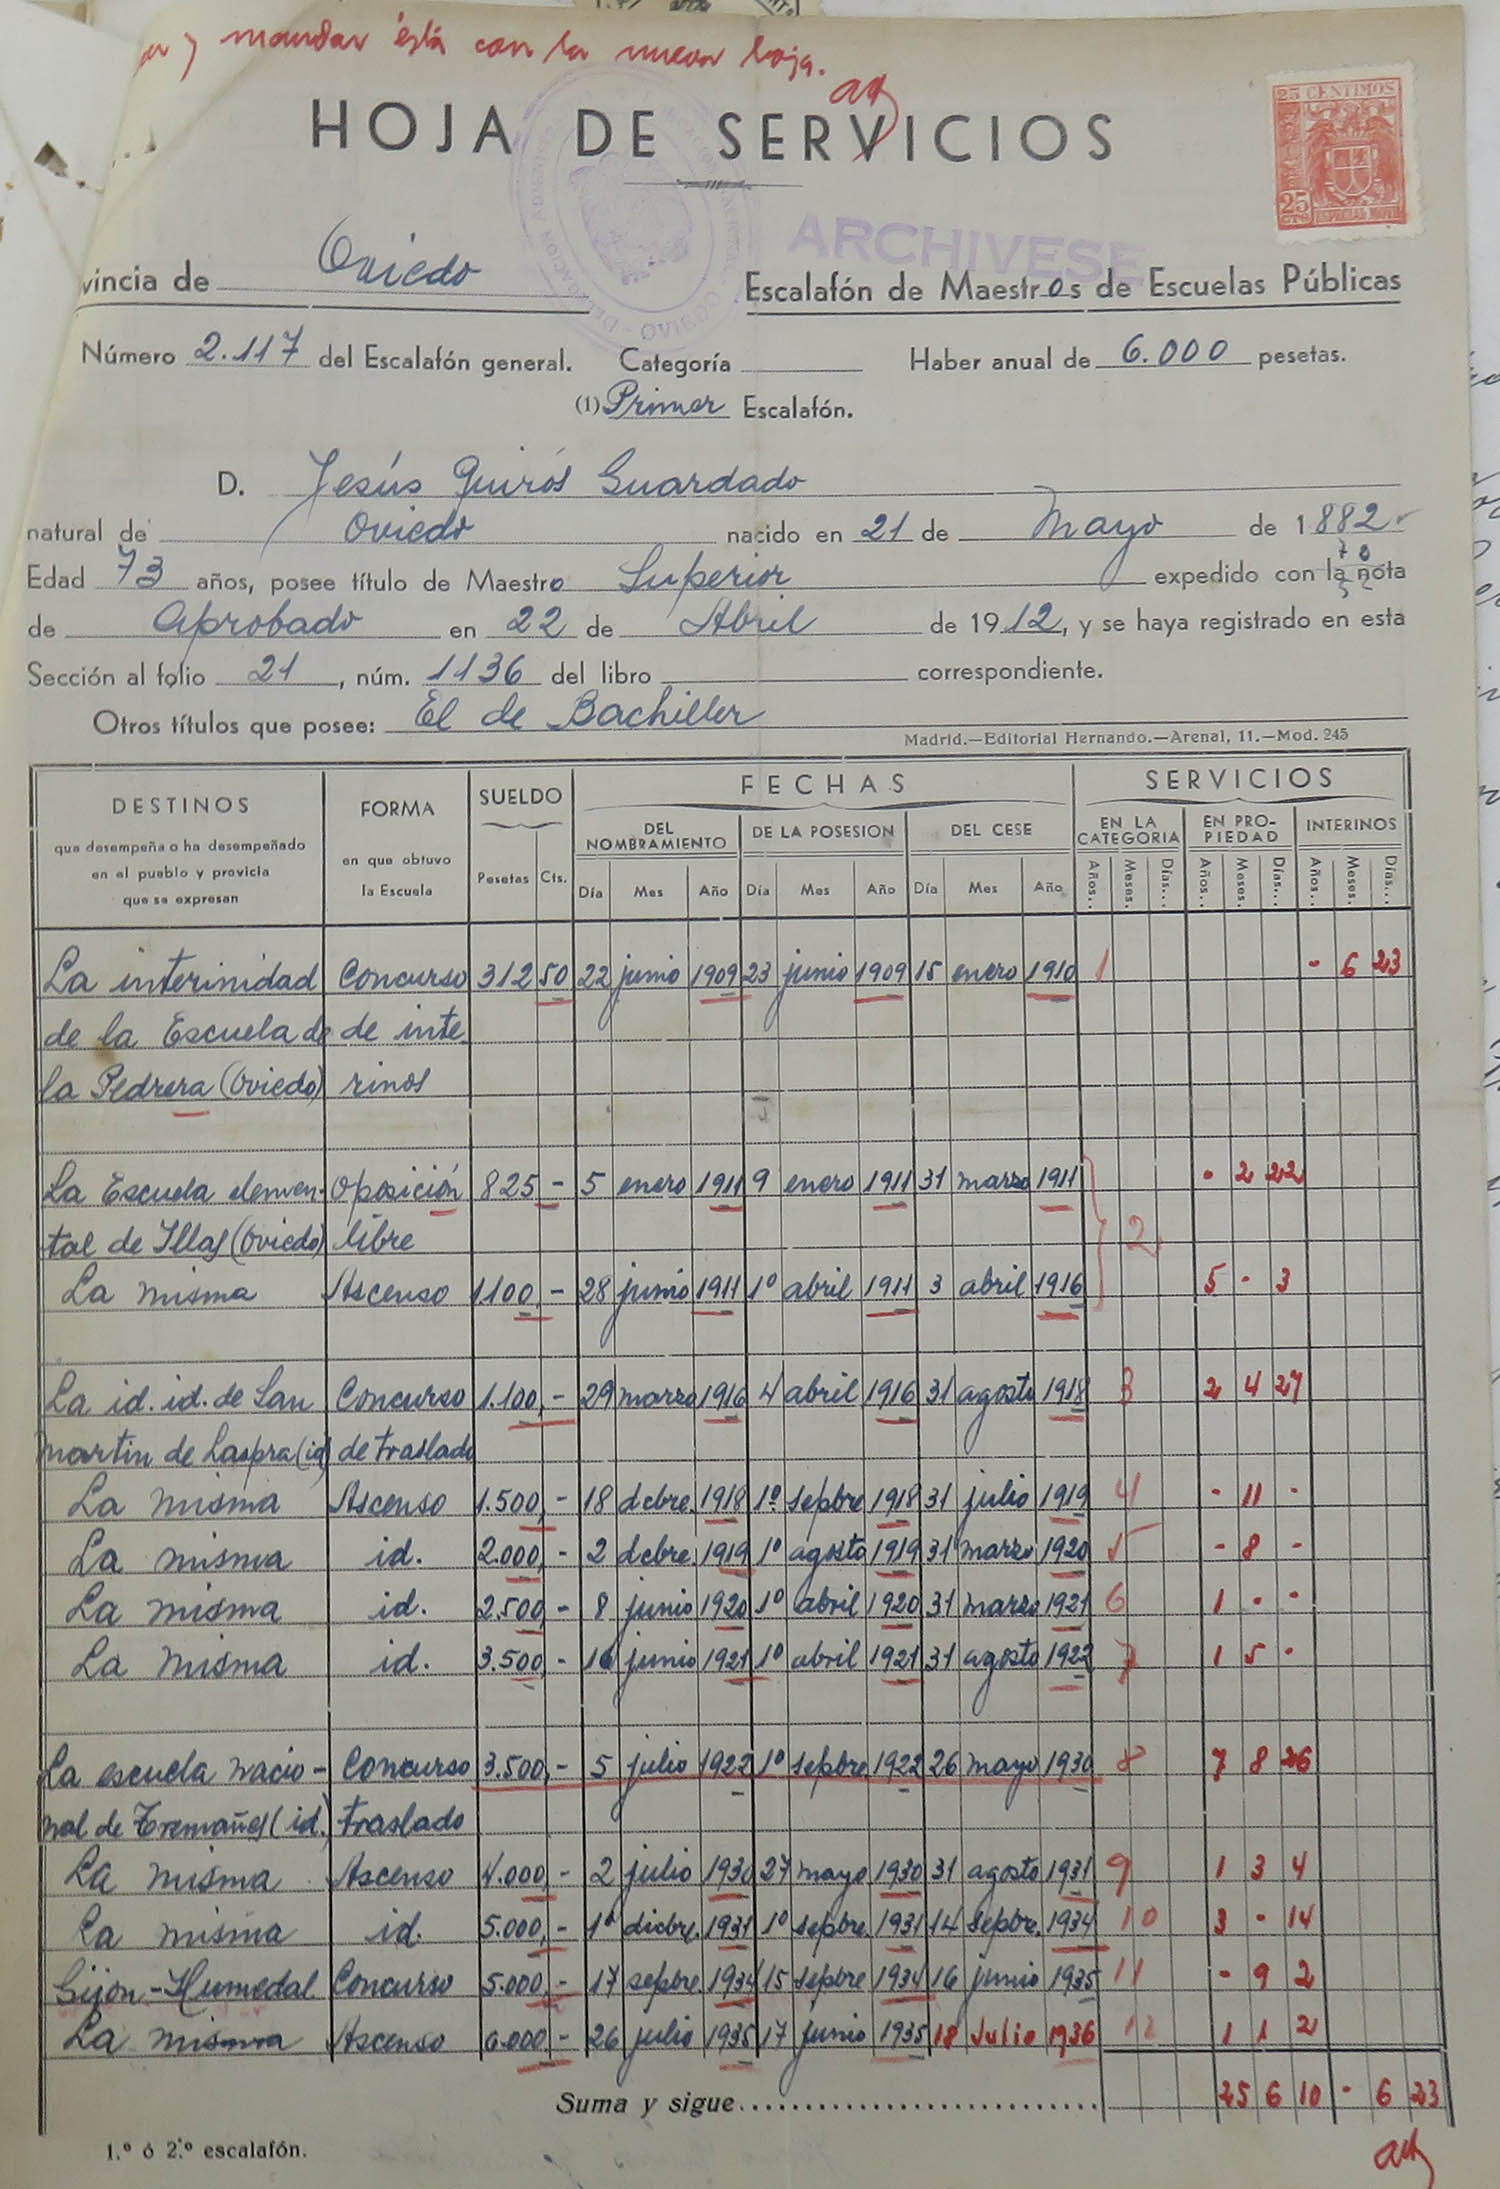 y mandar ésta con la nueva hoja.
HOJA DE SERVICIOS
25 CENTIMOS
25 CTS
ESPECIAL MOVIL
ARCHIVESE
vincia de Oviedo Escalafón de Maestros de Escuelas Públicas
Número 2.117 del Escalafón general. Categoría Haber anual de 6.000 pesetas.
(1) Primer Escalafón.
D. Jesús Quirós Guardado
natural de Oviedo nacido en 21 de Mayo de 1882
Edad 73 años, posee título de Maestro Superior expedido con la nota
de Aprobado en 22 de Abril de 1912, y se haya registrado en esta
Sección al folio 21, núm. 1136 del libro correspondiente.
Otros títulos que posee: El de Bachiller
Madrid.—Editorial Hernando.—Arenal, 11.—Mod. 245
DESTINOS FORMA SUELDO FECHAS SERVICIOS
que desempeña o ha desempeñado en el pueblo y provicia que se expresan en que obtuvo la Escuela DEL NOMBRAMIENTO DE LA POSESION DEL CESE EN LA CATEGORIA EN PROPIEDAD INTERINOS
Pesetas Cts. Día Mes Año Día Mes Año Día Mes Año Años.. Meses. Días... Años.. Meses. Días... Años.. Meses. Días...
La interinidad Concurso 312 50 22 junio 1909 23 junio 1909 15 enero 1910 1 - 6 23
de la Escuela de de inte
la Pedrera (Oviedo) rinos
La Escuela elemen- Oposición 825 - 5 enero 1911 9 enero 1911 31 marzo 1911 - 2 22
tal de Illas (Oviedo) libre 2
La misma Ascenso 1.100 - 28 junio 1911 1º abril 1911 3 abril 1916 5 - 3
La id. id. de San Concurso 1.100, - 29 marzo 1916 4 abril 1916 31 agosto 1918 3 2 4 27
Martin de Laspra (id) de traslado
La misma Ascenso 1.500, - 18 dcbre. 1918 1º sepbre 1918 31 julio 1919 4 - 11 -
La misma id. 2.000, - 2 dcbre. 1919 1º agosto 1919 31 marzo 1920 5 - 8 -
La misma id. 2.500, - 8 junio 1920 1º abril 1920 31 marzo 1921 6 1 - -
La misma id. 3.500, - 16 junio 1921 1º abril 1921 31 agosto 1922 7 1 5 -
La escuela nacio- Concurso 3.500, - 5 julio 1922 1º sepbre 1922 26 mayo 1930 8 7 8 26
nal de Tremañes (id.) traslado
La misma Ascenso 4.000, - 2 julio 1930 27 mayo 1930 31 agosto 1931 9 1 3 4
La misma id. 5.000, - 1º dicbre. 1931 1º sepbre. 1931 14 sepbre. 1934 10 3 - 14
Gijón-Humedal Concurso 5.000, - 17 sepbre 1934 15 sepbre 1934 16 junio 1935 11 - 9 2
La misma Ascenso 6.000 - 26 julio 1935 17 junio 1935 18 Julio 1936 12 1 1 2
Suma y sigue 25 6 10 - 6 23
1.º ó 2.º escalafón.